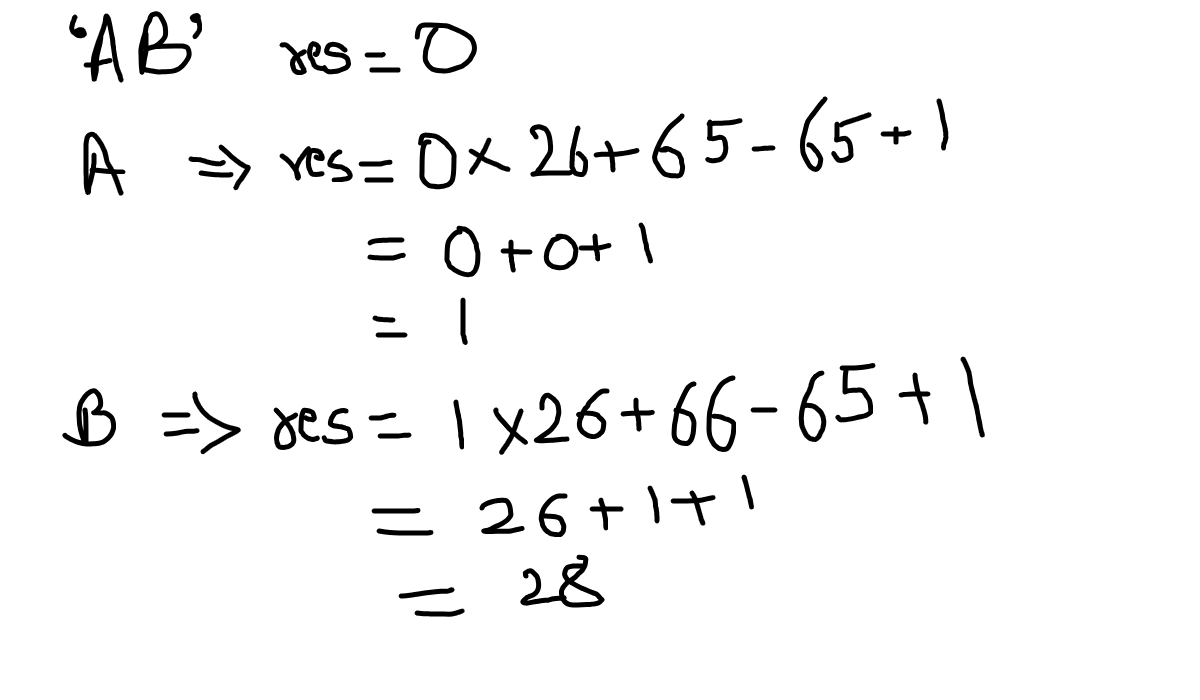 'AB' res = 0
A ⇒ res = 0 × 26 + 65 - 65 + 1
= 0 + 0 + 1
= 1
B ⇒ res = 1 × 26 + 66 - 65 + 1
= 26 + 1 + 1
= 28